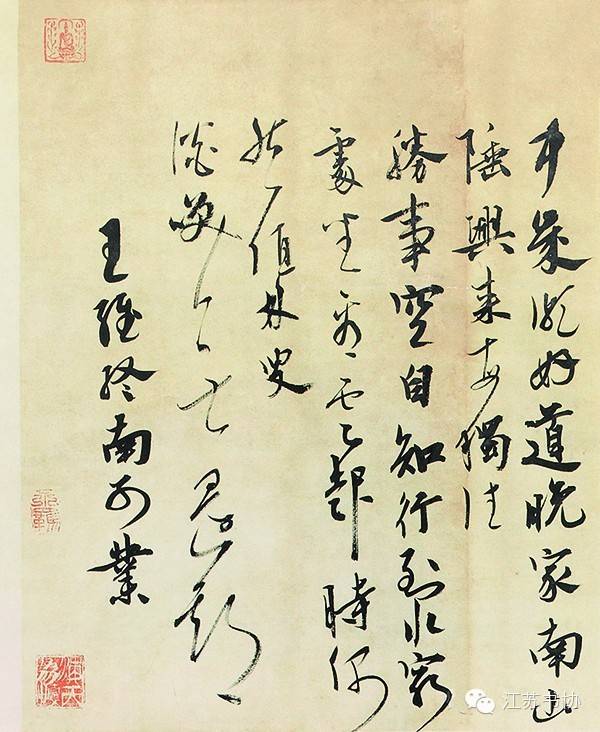 中歲頗好道晚家南山
陲興來每獨往
勝事空自知行到水窮
處坐看雲起時偶
然值林叟
談笑無還期
王維終南別業
江苏书协